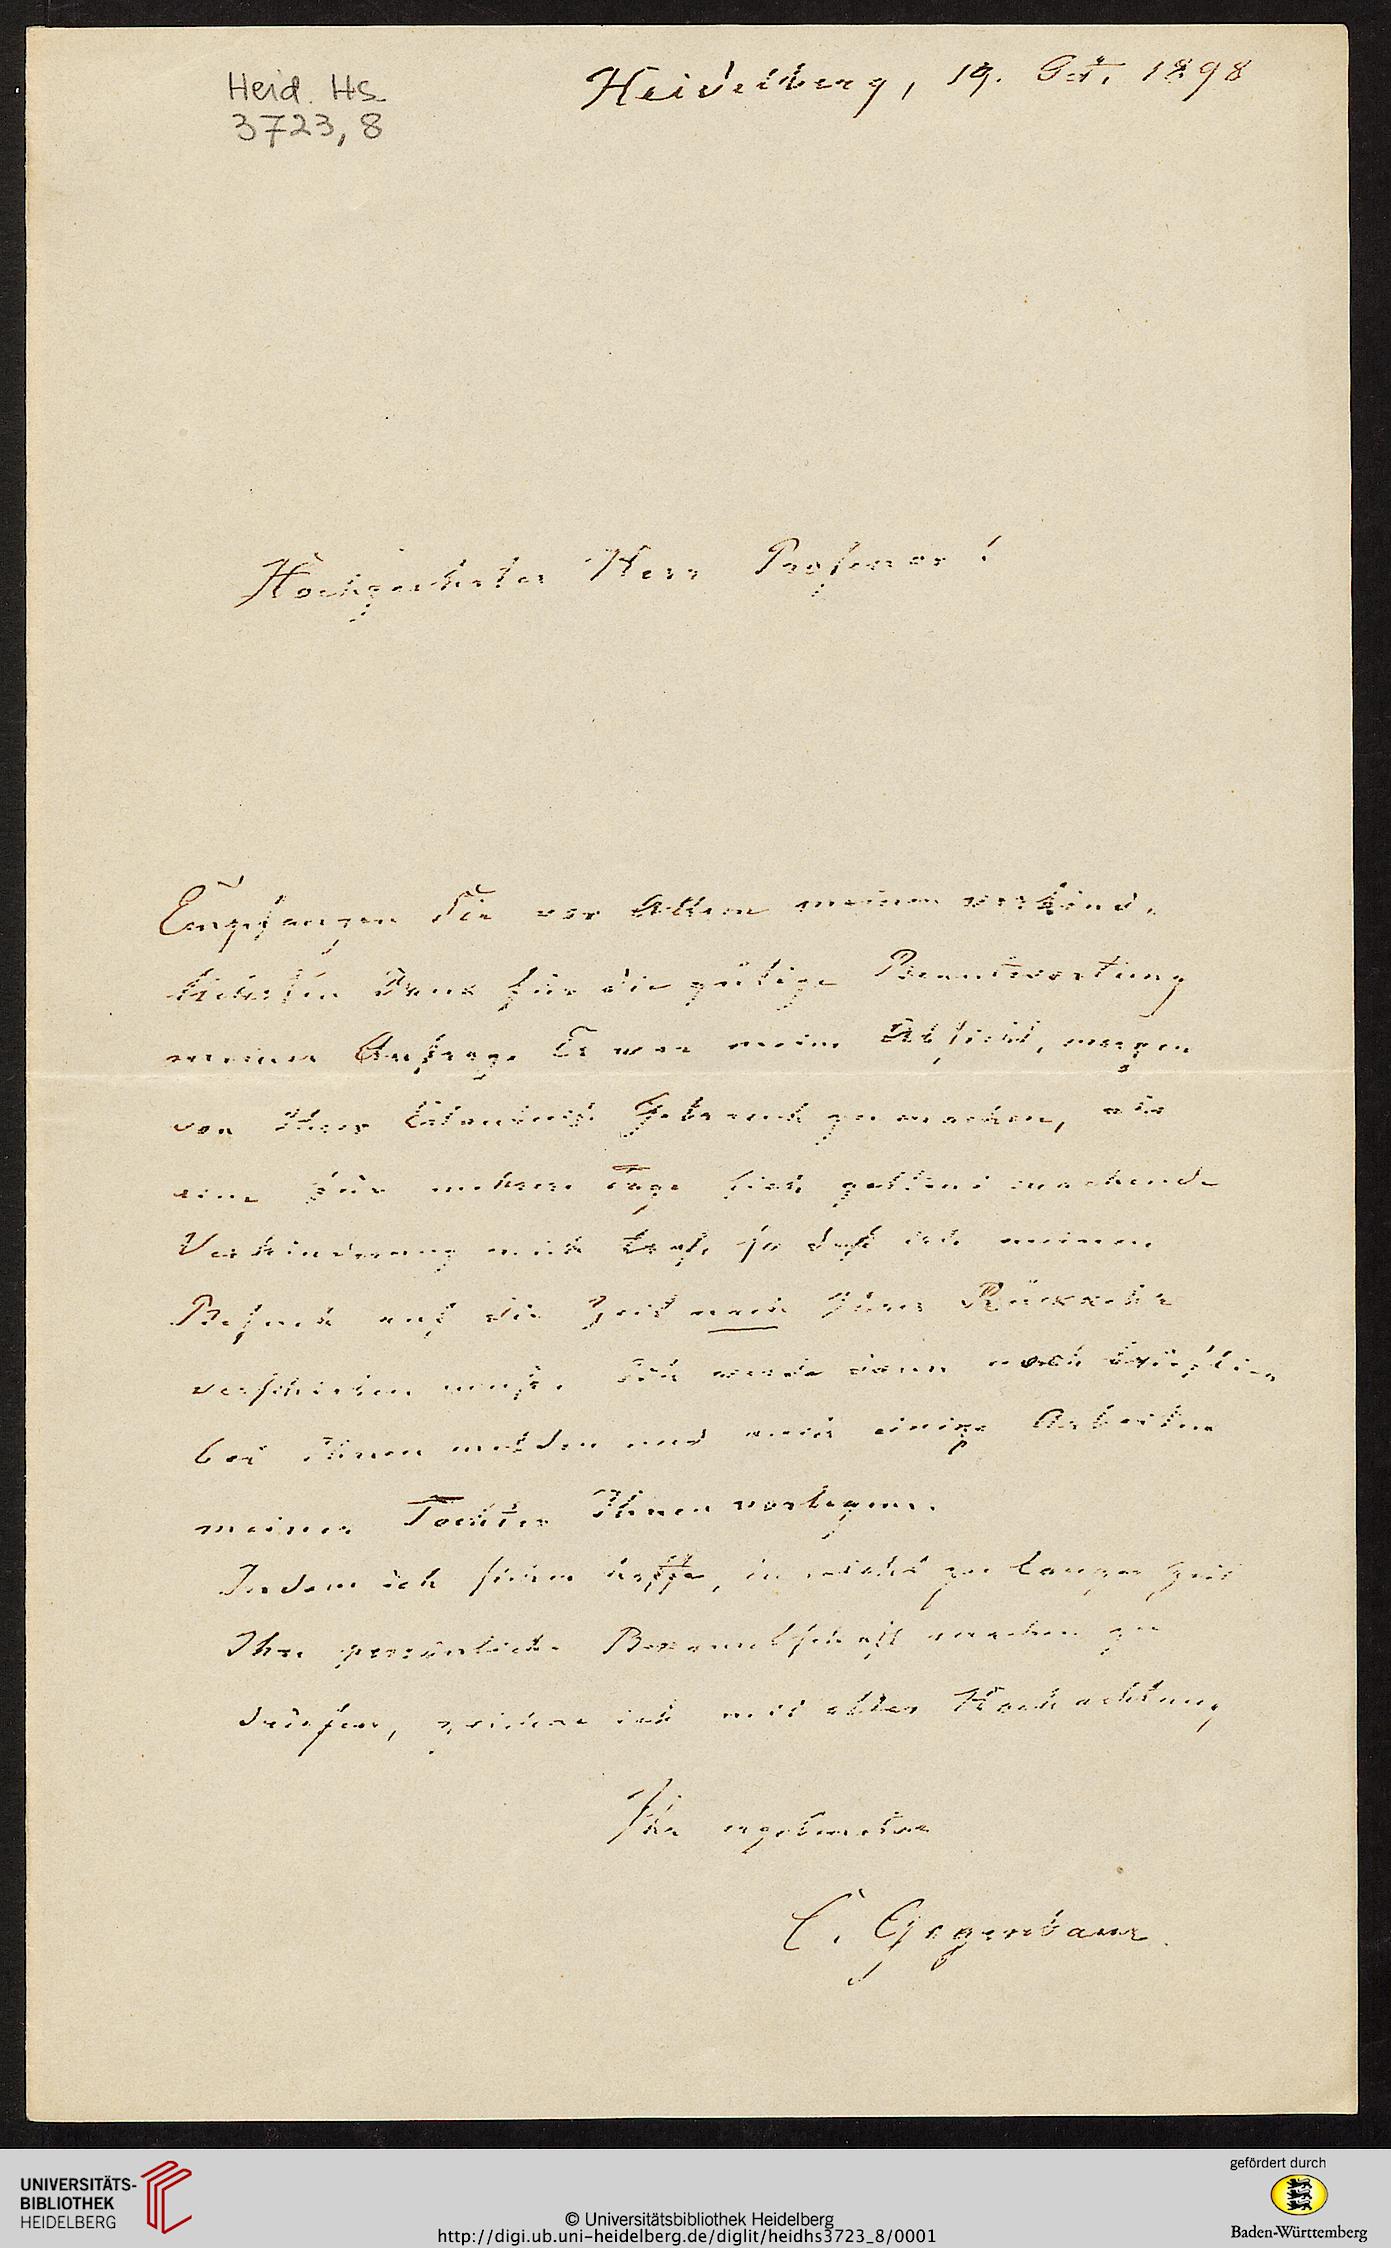 Heid. Hs.
3723, 8
Heidelberg, 19. Oct. 1898
Hochgeehrter Herr Professor!
Empfangen Sie vor Allem meinen verbind-
lichsten Dank für die gütige Beantwortung
meiner Anfrage. Es war meine Absicht, morgen
von Ihrer Erlaubniß Gebrauch zu machen, als
eine für mehrere Tage sich geltend machende
Verhinderung mich traf, so daß ich meinen
Besuch auf die Zeit nach Ihrer Rückkehr
verschieben muß. Ich werde dann noch brieflich
bei Ihnen melden und auch einige Arbeiten
meiner Tochter Ihnen vorlegen.
Indem ich hoffe, in nicht zu langer Zeit
Ihre persönliche Bekanntschaft machen zu
dürfen, zeichne ich mit aller Hochachtung
Ihr ergebenster
C. Gegenbaur.
UNIVERSITÄTS-
BIBLIOTHEK
HEIDELBERG
© Universitätsbibliothek Heidelberg
http://digi.ub.uni-heidelberg.de/diglit/heidhs3723_8/0001
gefördert durch
Baden-Württemberg